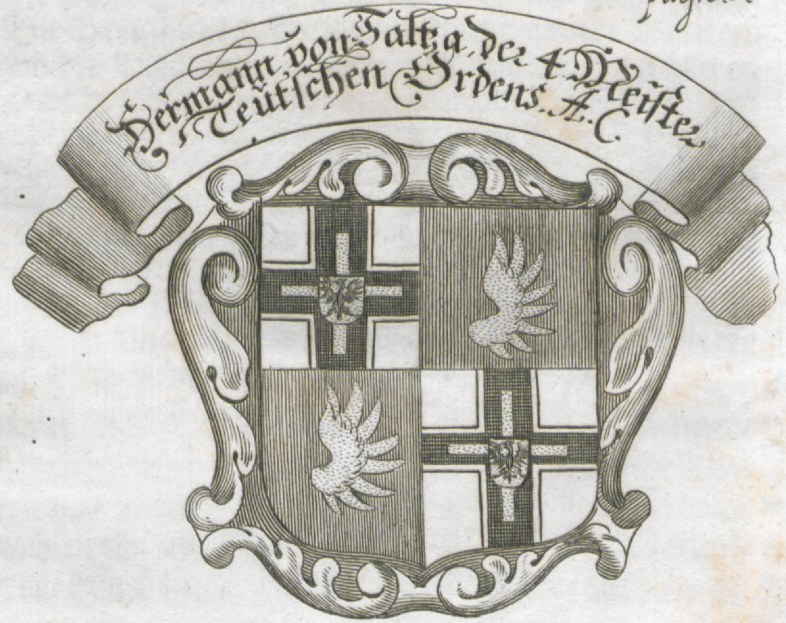 Hermann von Saltza, der 4 Meister
Teutschen Ordens. A. C.